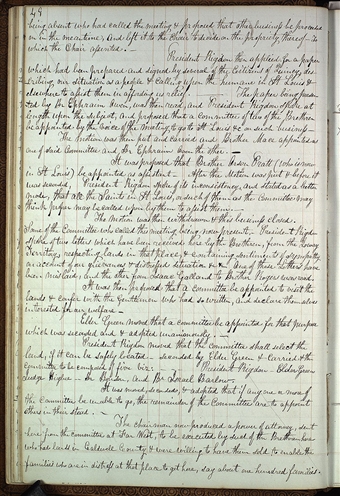 49
being about who had called the meeting & proposed that this business be promised
on in the meantime. And left it to the Chair to decide on the propriety thereof— to
which the Chair assented.—
President Rigdon then applied for a paper
which had been prepared and signed by several of the Citizens of Quincy, des-
cribing our situation as a people & calling upon the humane in St Louis &
elsewhere to assist them in affording us relief. The paper being presen-
ted by Br Ephraim Owen, was then read, and President Rigdon spoke at
length upon the subject, and proposed that a Committee of two of the Brethren
be appointed by the voice of the meeting, to go to St Louis &c on such business—
The motion was then put and carried and Brother Mace appointed as
one of said Committee and Br Ephraim Owen the other—
It was proposed that Brother Orson Pratt (who is now
in St Louis) be appointed as assistant— After the Motion was put & before it
was seconded, President Rigdon spoke of its inconsistency, and stated as a better
mode, that all the Saints in St Louis, or such of them as the Committee may
think proper may be called upon by them to assist them.—
The Motion was then withdrawn & this business closed.
Some of the Committee who called this meeting being now present, President Rigdon
spoke of two letters which have been received here by the Brethren, from the Ioway
Territory, respecting lands in that place, & containing sentiments of sympathy
on account of our grievances & distressed situation now. One of those letters have
been mislaid, but the other from Isaac Galland to Brother Rogers was read.
It was then proposed that a Committee be appointed to visit the
lands & confer with the Gentlemen who had so written, and declare themselves
interested for our welfare—
Elder Green moved that a committee be appointed for that purpose
which was seconded, and & adopted unanimously.—
President Rigdon moved that the Committee shall select the
land, if it can be safely located— seconded by Elder Green & Carried & the
Committee to be composed of five viz: President Rigdon— Elder Green
Judge Higbee— Br Benson, and Br Israel Barlow.
It was moved, seconded, & adopted that if any one or more of
the Committee be unable to go, the remainder of the Committee are to appoint
others in their stead.—
The chairman now produced a power of attorney, sent
here from the committee at Far West, to be executed by such of the Brethren here
who had lands in Caldwell County & were willing to have them sold to enable the
families who are in distress at that place to get here, say about one hundred families.